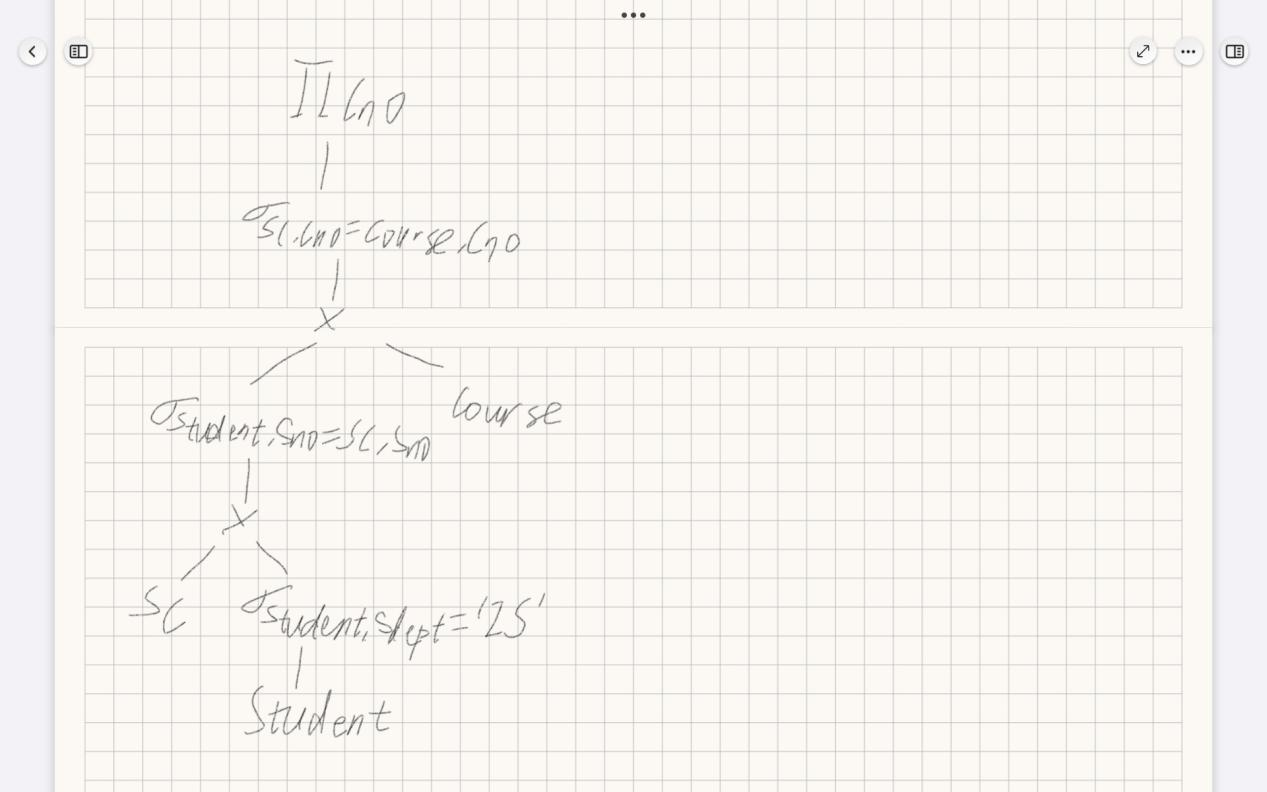 Π Cno
σSC.Cno=Course.Cno
×
σStudent.Sno=SC.Sno
Course
×
SC
σStudent.Sdept='IS'
Student